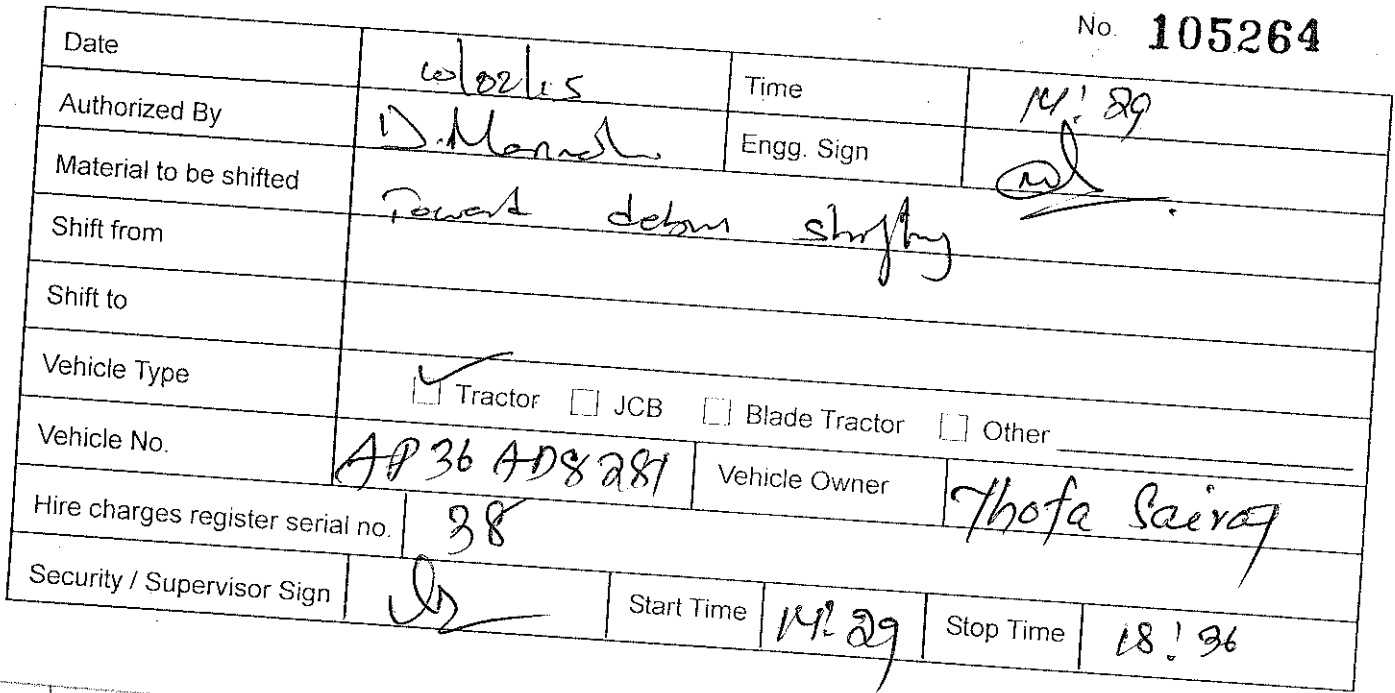 No. 105264
Date 10/02/15 Time 14:29
Authorized By D. Engg. Sign
Material to be shifted Toward debris shifting
Shift from
Shift to
Vehicle Type Tractor JCB Blade Tractor Other
Vehicle No. AP36 AD8281 Vehicle Owner Thofa Sairaj
Hire charges register serial no. 38
Security / Supervisor Sign Start Time 14:29 Stop Time 18:36